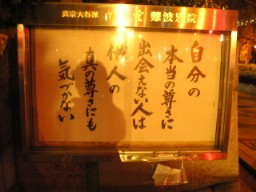 真宗大谷派
難波別院
自分の
本当の尊さに
出会えない人は
他人の
真の尊さにも
気づかない